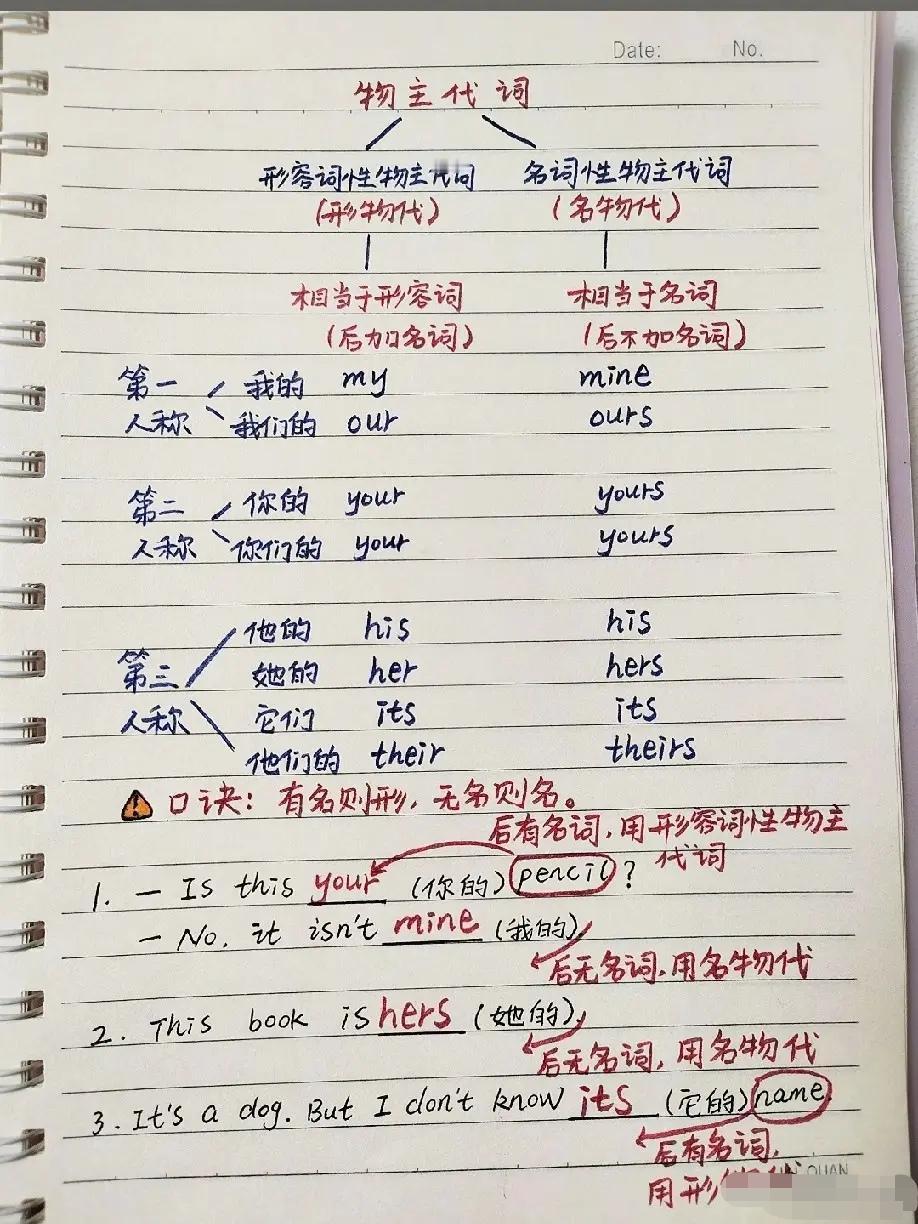 Date: No.
物主代词
形容词性物主代词 名词性物主代词
(形物代) (名物代)
相当于形容词 相当于名词
(后加名词) (后不加名词)
第一 我的 my mine
人称 我们的 our ours
第二 你的 your yours
人称 你们的 your yours
他的 his his
第三 她的 her hers
人称 它们 its its
他们的 their theirs
口诀: 有名则形, 无名则名。
后有名词, 用形容词性物主
代词
1. — Is this your (你的) pencil ?
— No, it isn't mine (我的)
后无名词, 用名物代
2. This book is hers (她的)
后无名词, 用名物代
3. It's a dog. But I don't know its (它的) name
后有名词,
用形